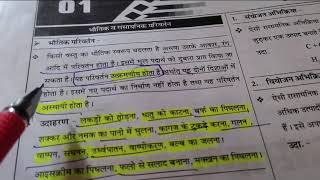 01
भौतिक व रासायनिक परिवर्तन
भौतिक परिवर्तन
किसी वस्तु का भौतिक स्वरूप बदलता है अथवा उसके आकार, रंग
आदि में परिवर्तन होता है। इसमें मूल पदार्थ को दुबारा प्राप्त किया जा
सकता है। यह परिवर्तन उत्क्रमणीय होता है अर्थात् यह दोनों दिशाओं में
होता है। इसमें नए पदार्थ का निर्माण नहीं होता है तथा यह परिवर्तन
अस्थायी होता है।
उदाहरण - लकड़ी को तोड़ना, धातु को काटना, बर्फ का पिघलना,
शक्कर और नमक का पानी में घुलना, कागज के टुकड़े करना, गलन,
वाष्पन, संघनन, उर्ध्वपातन, वाष्पीकरण, बल्ब का जलना।
आइसक्रीम का पिघलना, फलों से सलाद बनाना, मक्खन का पिघलना।
1. संयोजन अभिक्रिया
ऐसी रासायनिक
जुड़कर एक
उदा. -
C +
2. वियोजन अभिक्रिया
ऐसी रासायनिक
उदा. -